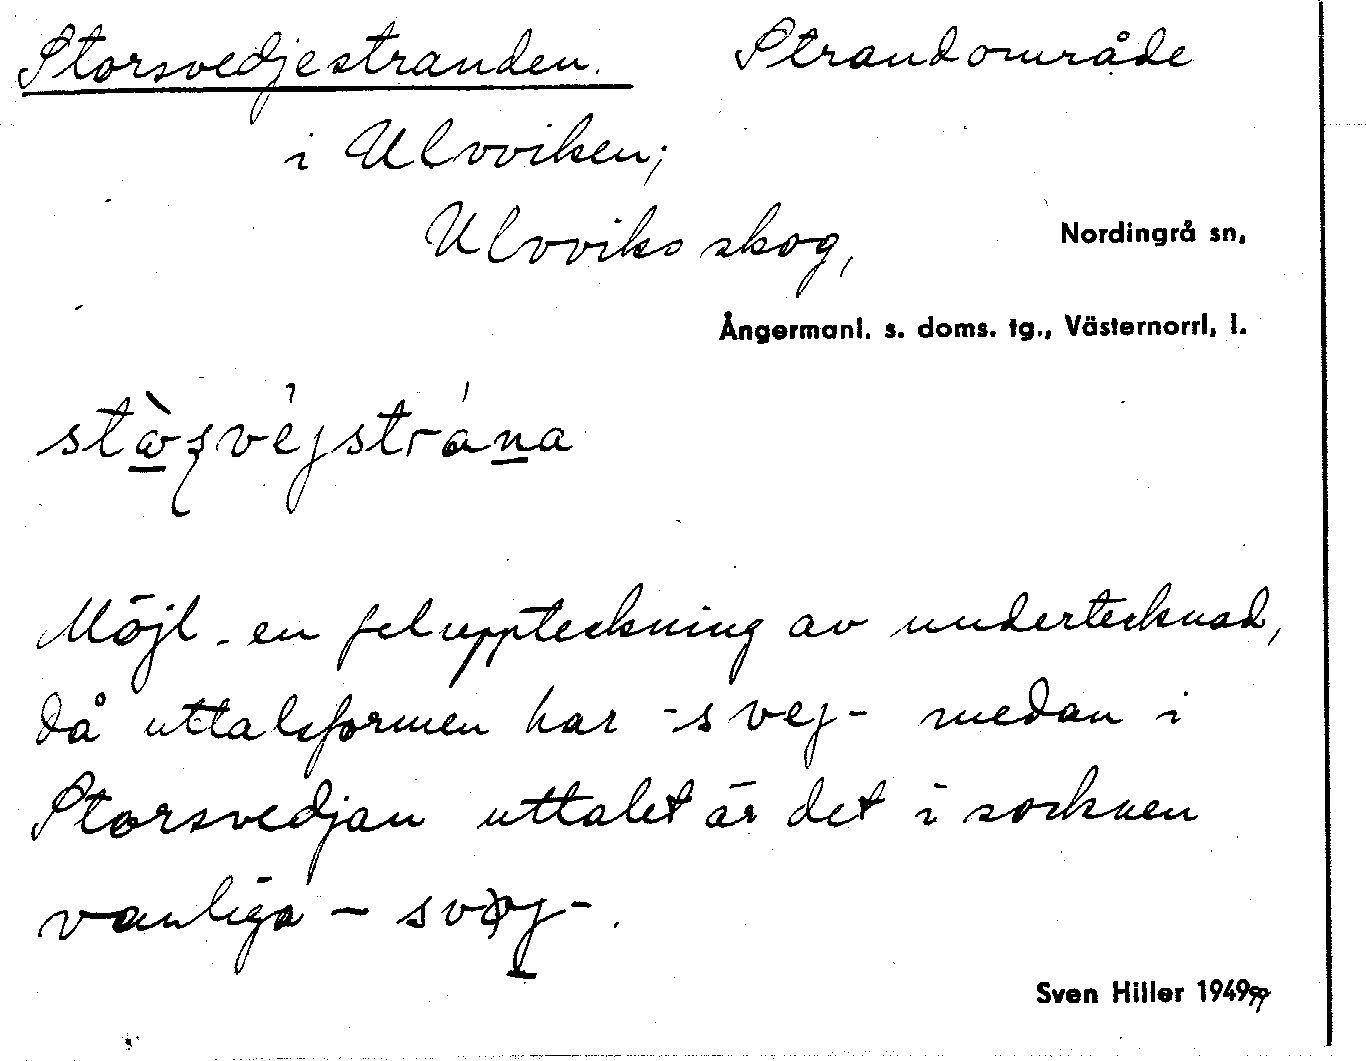 Storsvedjestranden. Strandområde
i Ulvviken;
Ulvviks skog, Nordingrå sn,
Ångermanl. s. doms. tg., Västernorrl. l.
Möjl. en feluppteckning av undertecknad,
då uttalsformen har -svej- medan i
Storsvedjan uttalet är det i socknen
vanliga -
Sven Hiller 1949